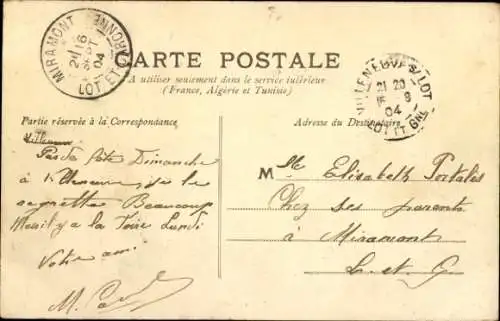 MIRAMONT
16
SEPT
04
LOT ET GARONNE
CARTE POSTALE
A utiliser seulement dans le service intérieur
(France, Algérie et Tunisie)
VILLENEUVE S/ LOT
21 20
9
04
LOT ET GNE
Partie réservée à la Correspondance
Adresse du Destinataire
Pas de fête Dimanche
à Villeneuve, je le
regrette Beaucoup
Mais il y a la foire Lundi
Votre ami
M.
Mlle Elisabeth Portalès
Chez ses parents
à Miramont
L. et G